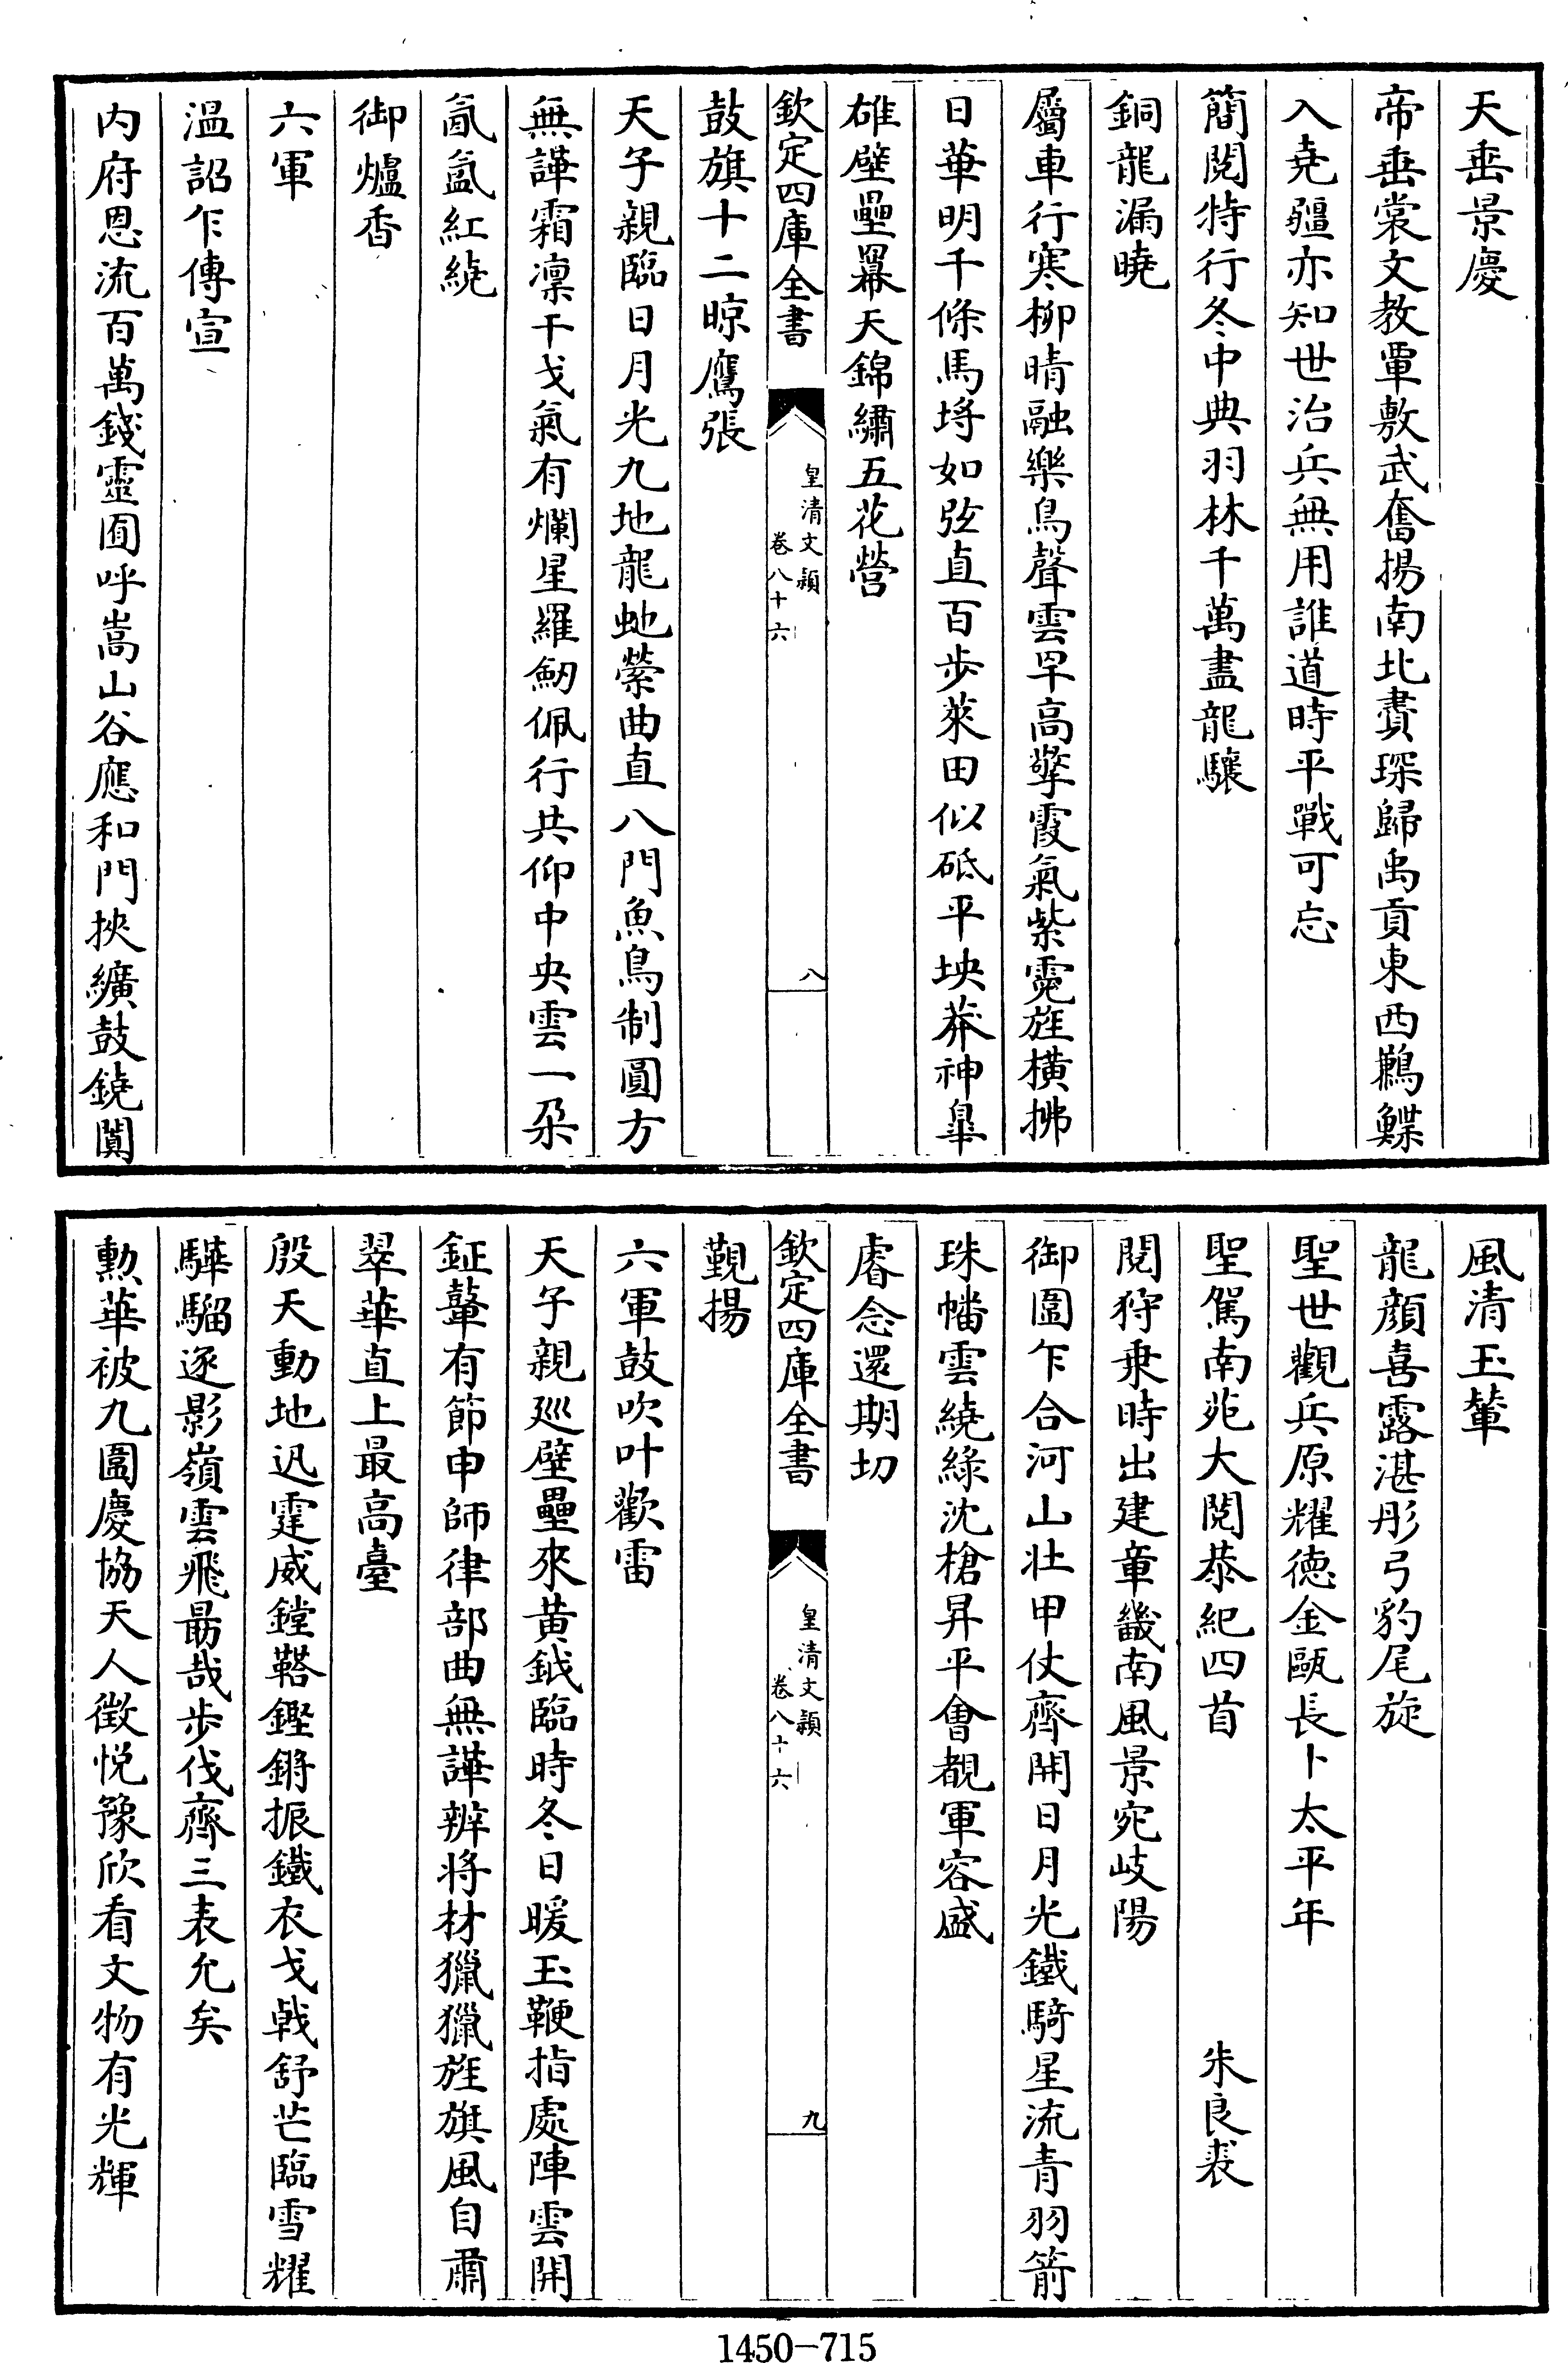 天垂景慶
帝垂裳文教覃敷武奮揚南北賮琛歸禹貢東西鶼鰈
入堯疆亦知世治兵無用誰道時平戰可忘
簡閲特行冬中典羽林千萬盡龍驤
銅龍漏曉
屬車行寒柳晴融樂鳥聲雲罕高擎霞氣紫霓旌横拂
日華明千條馬埒如弦直百步萊田似砥平坱莽神臯
雄壁壘羃天錦繡五花營
欽定四庫全書
皇清文穎
卷八十六
八
鼓旗十二晾鷹張
天子親臨日月光九地龍虵縈曲直八門魚鳥制圓方
無譁霜凜干戈氣有爛星羅劒佩行共仰中央雲一朶
氤氳紅繞
御爐香
六軍
温詔乍傳宣
内府恩流百萬錢靈囿呼嵩山谷應和門挾纊鼓鐃闐
風清玉輦
龍顔喜露湛彤弓豹尾旋
聖世觀兵原耀徳金甌長卜太平年
聖駕南苑大閲恭紀四首 朱良裘
閲狩乗時出建章畿南風景宛岐陽
御圍乍合河山壯甲仗齊開日月光鐵騎星流青羽箭
珠幡雲繞緑沈槍昇平會覩軍容盛
睿念還期切
欽定四庫全書
皇清文穎
卷八十六
九
覲揚
六軍鼓吹叶歡雷
天子親廵壁壘來黄鉞臨時冬日暖玉鞭指處陣雲開
鉦鼙有節申師律部曲無譁辨將材獵獵旌旗風自肅
翠華直上最高臺
殷天動地迅霆威鏜鞳鏗鏘振鐵衣戈戟舒芒臨雪耀
驊騮逐影嶺雲飛勗哉步伐齊三表允矣
勲華被九圍慶協天人徴悦豫欣看文物有光輝
1450-715